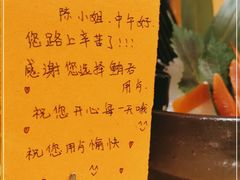 陈小姐.中午好.
您路上辛苦了!!!
感谢您选择鳗君
用歺.
祝您开心每一天哦
祝您用歺愉快